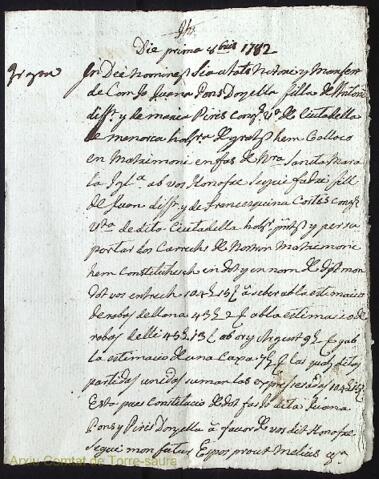 Die primo 8bris 1782
In Dei Nomine sia a tots Notori y Manifest
Com Jo Juana Pons Donzella filla de Antoni
diff.t y de Maria Piris Ciutadella
de Menorca de grat hem Colloco
en Matrimoni en fas de Nra Santa Mara
la Igl.a ab vos Honofre Seguí fadrí fill
de Juan diff.t y de Francesquina Cortès
de dita Ciutadella y per sa
portar los Carrechs de Nostron Matrimoni
hem Constituhesch en dot y en nom de dot mon
dot vos entrech 104 15 a saber ab la estimacio
de robas de llona 43 2 ab la estimacio de
robas de lli 45 13 ab or y Argent 9 y ab
la estimacio de una Caxa 7 las quals ditas
partidas unidas suman las expressadas 104 15
Esta pues Constitucio de dot fas Jo dita Juana
Pons y Piris Donzella a favor de vos dit Honofre
Seguí mon futur Espos prout Melius
Arxiu Comtat de Torre-saura